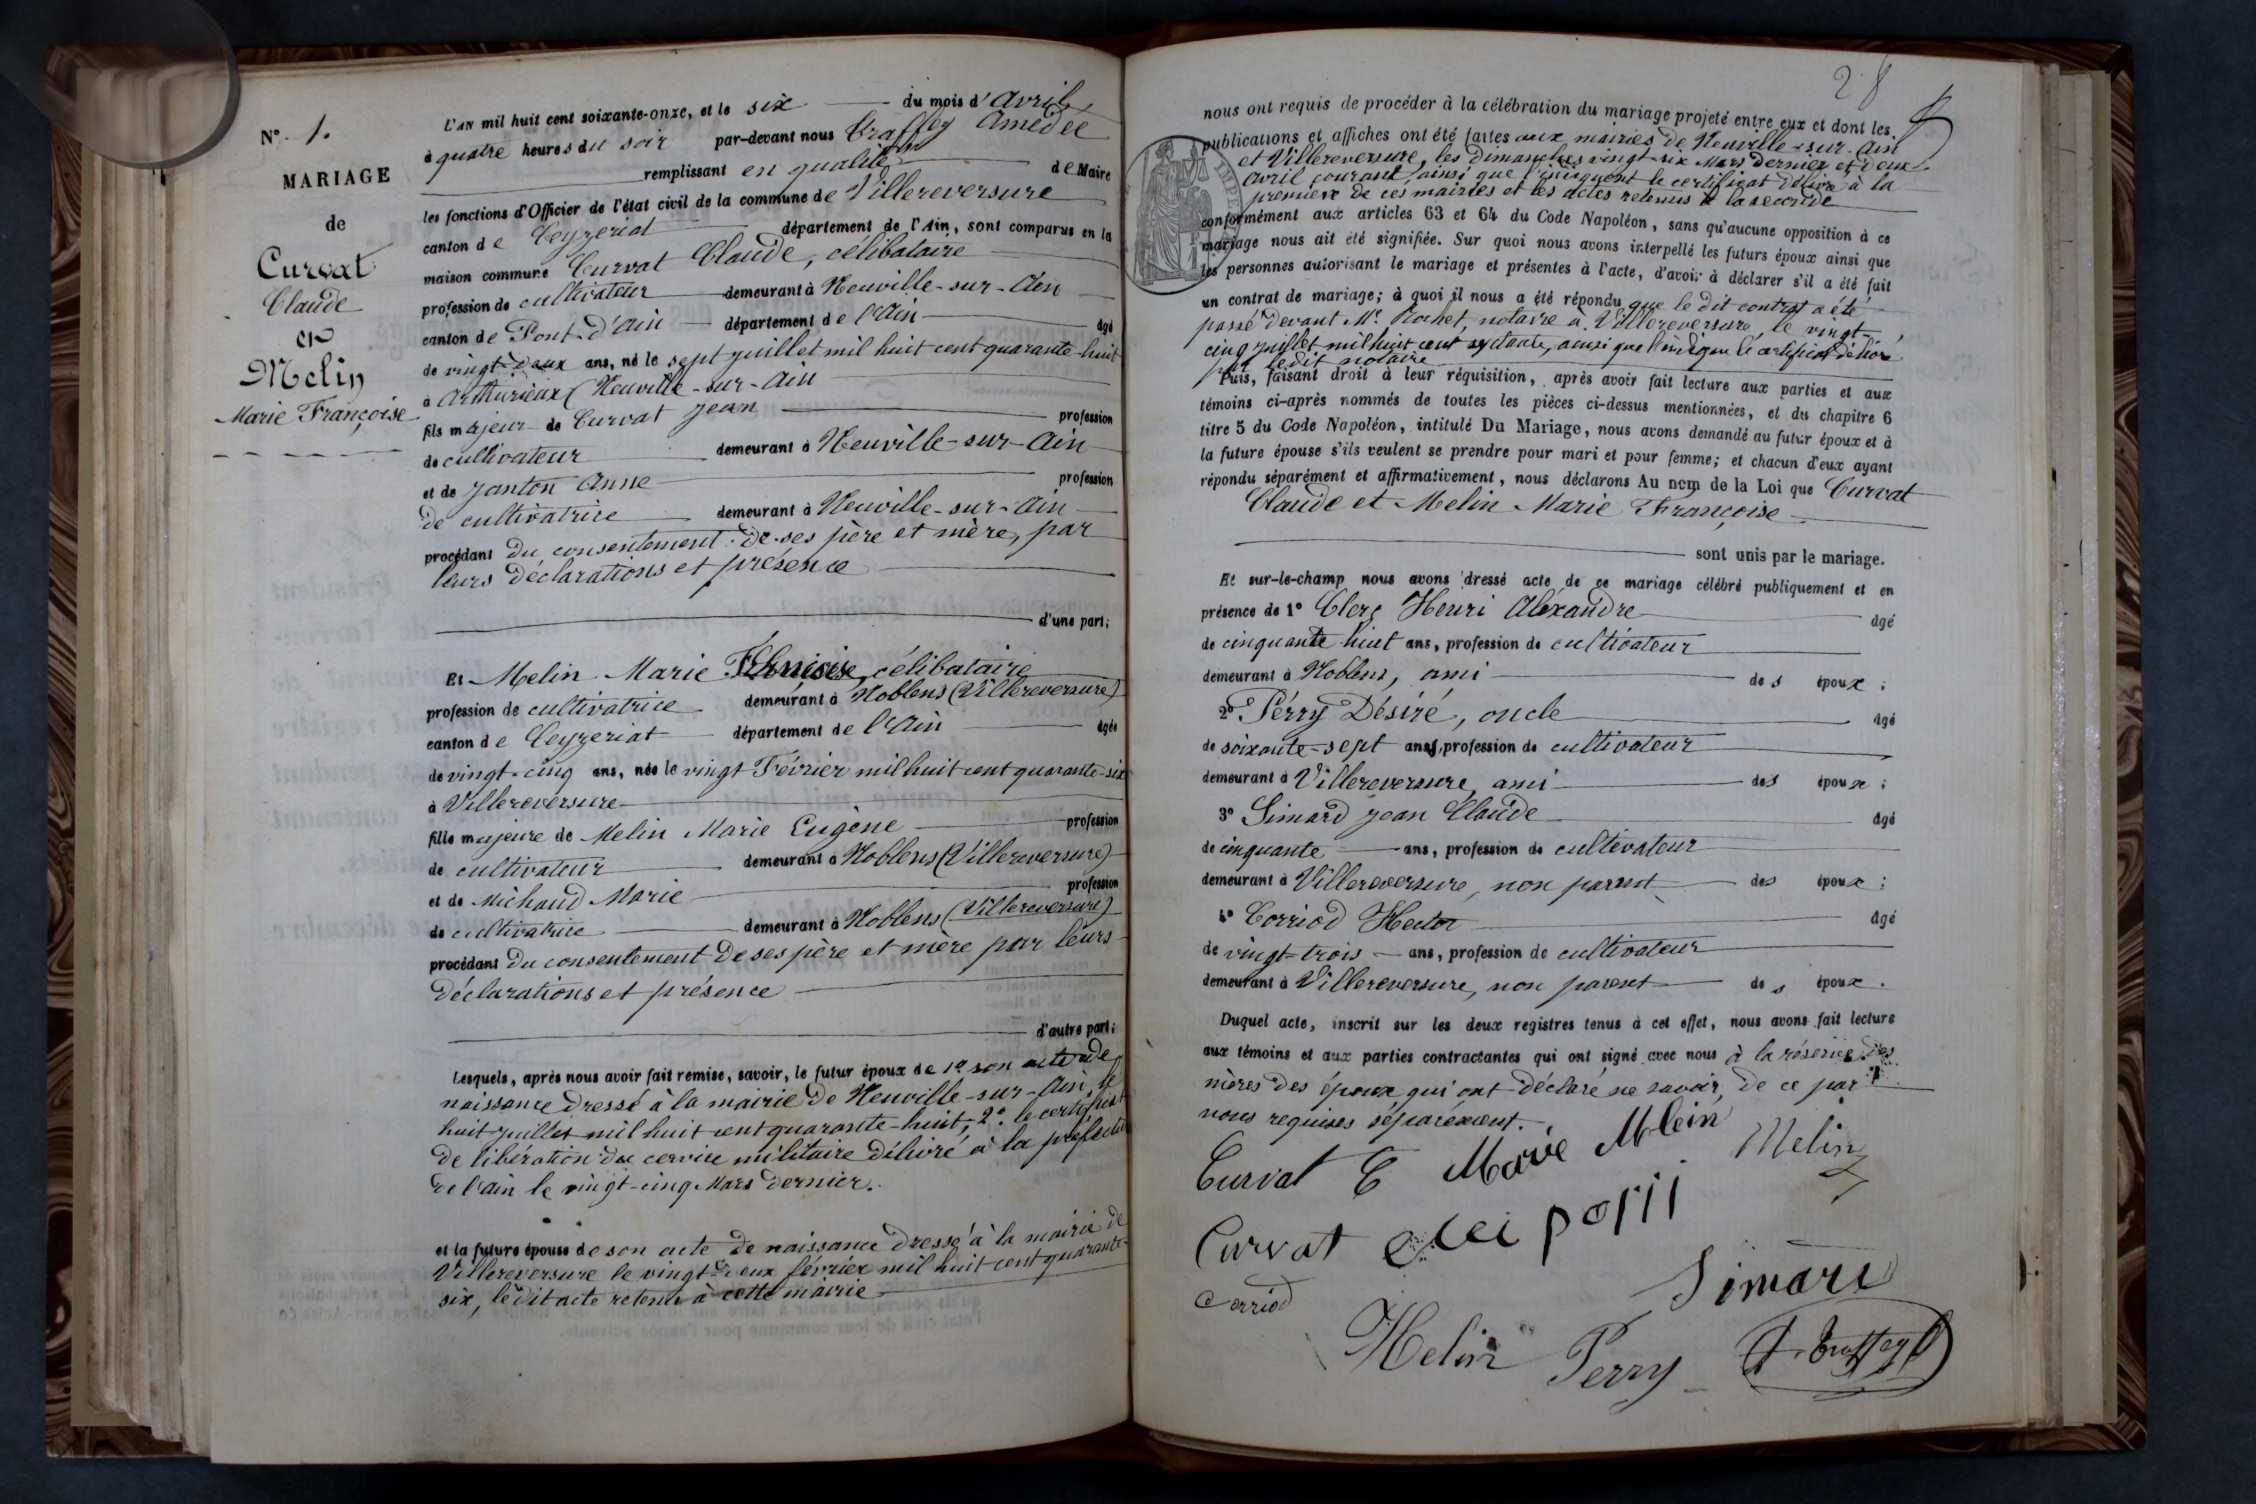 N° 1.
MARIAGE
de
Curvat
Claude
et
Melin
Marie Françoise
L'AN mil huit cent soixante-onze, et le six du mois d'Avril,
à quatre heures du soir par-devant nous Traffey Amédée
remplissant en qualité de Maire
les fonctions d'Officier de l'état civil de la commune de Villereversure
canton de Ceyzeriat département de l'Ain, sont comparus en la
maison commune Curvat Claude, célibataire
profession de cultivateur demeurant à Neuville-sur-Ain
canton de Pont-d'Ain département de l'Ain âgé
de vingt-deux ans, né le sept juillet mil huit cent quarante-huit
à Arthurieux (Neuville-sur-Ain
fils majeur de Curvat Jean profession
de cultivateur demeurant à Neuville-sur-Ain
et de Janton Anne profession
de cultivatrice demeurant à Neuville-sur-Ain
procédant du consentement de ses père et mère, par
leurs déclarations et présence
d'une part;
Et Melin Marie célibataire
profession de cultivatrice demeurant à Noblens (Villereversure)
canton de Ceyzeriat département de l'Ain âgée
de vingt-cinq ans, née le vingt Février mil huit cent quarante-six
à Villereversure
fille majeure de Melin Marie Eugène profession
de cultivateur demeurant à Noblens (Villereversure)
et de Michaud Marie profession
de cultivatrice demeurant à Noblens (Villereversure)
procédant du consentement de ses père et mère par leurs
déclarations et présence
d'autre part;
Lesquels, après nous avoir fait remise, savoir, le futur époux de 1° son acte de
naissance dressé à la mairie de Neuville-sur-Ain, le
huit juillet mil huit cent quarante-huit, 2° le certificat
de libération du cervice militaire délivré à la préfecture
de l'Ain le vingt-cinq Mars dernier.
et la future épouse de son acte de naissance dressé à la mairie de
Villereversure le vingt-deux février mil huit cent quarante-
six, ledit acte retenu à cette mairie
28
nous ont requis de procéder à la célébration du mariage projeté entre eux et dont les
publications et affiches ont été faites aux mairies de Neuville-sur-Ain
et Villereversure, les dimanches vingt-six Mars dernier et deux
Avril courant, ainsi que l'indiquent le certificat délivré à la
première de ces mairies et les actes retenus à la seconde
conformément aux articles 63 et 64 du Code Napoléon, sans qu'aucune opposition à ce
mariage nous ait été signifiée. Sur quoi nous avons interpellé les futurs époux ainsi que
les personnes autorisant le mariage et présentes à l'acte, d'avoir à déclarer s'il a été fait
un contrat de mariage; à quoi il nous a été répondu que le dit contrat a été
passé devant Me Rochet, notaire à Villereversure, le vingt-
cinq juillet mil huit cent septante, ainsi que l'indique le certificat délivré
par ledit notaire
Puis, faisant droit à leur réquisition, après avoir fait lecture aux parties et aux
témoins ci-après nommés de toutes les pièces ci-dessus mentionnées, et du chapitre 6
titre 5 du Code Napoléon, intitulé Du Mariage, nous avons demandé au futur époux et à
la future épouse s'ils veulent se prendre pour mari et pour femme; et chacun d'eux ayant
répondu séparément et affirmativement, nous déclarons Au nom de la Loi que Curvat
Claude et Melin Marie Françoise
sont unis par le mariage.
Et sur-le-champ nous avons dressé acte de ce mariage célébré publiquement et en
présence de 1° Clerc Henri Aléxandre âgé
de cinquante-huit ans, profession de cultivateur
demeurant à Noblens, ami des époux;
2° Pérry Désiré, oncle âgé
de soixante-sept ans, profession de cultivateur
demeurant à Villereversure, ami des époux;
3° Simard Jean Claude âgé
de cinquante ans, profession de cultivateur
demeurant à Villereversure, non parent des époux;
4° Corriod Hector âgé
de vingt-trois ans, profession de cultivateur
demeurant à Villereversure, non parent des époux.
Duquel acte, inscrit sur les deux registres tenus à cet effet, nous avons fait lecture
aux témoins et aux parties contractantes qui ont signé avec nous à la réserve des
mères des époux qui ont déclaré ne savoir, de ce par
nous requises séparément.
Curvat C Marie Mlein Melin
Curvat
Simard
Corriod
Melin Perry A. Traffey